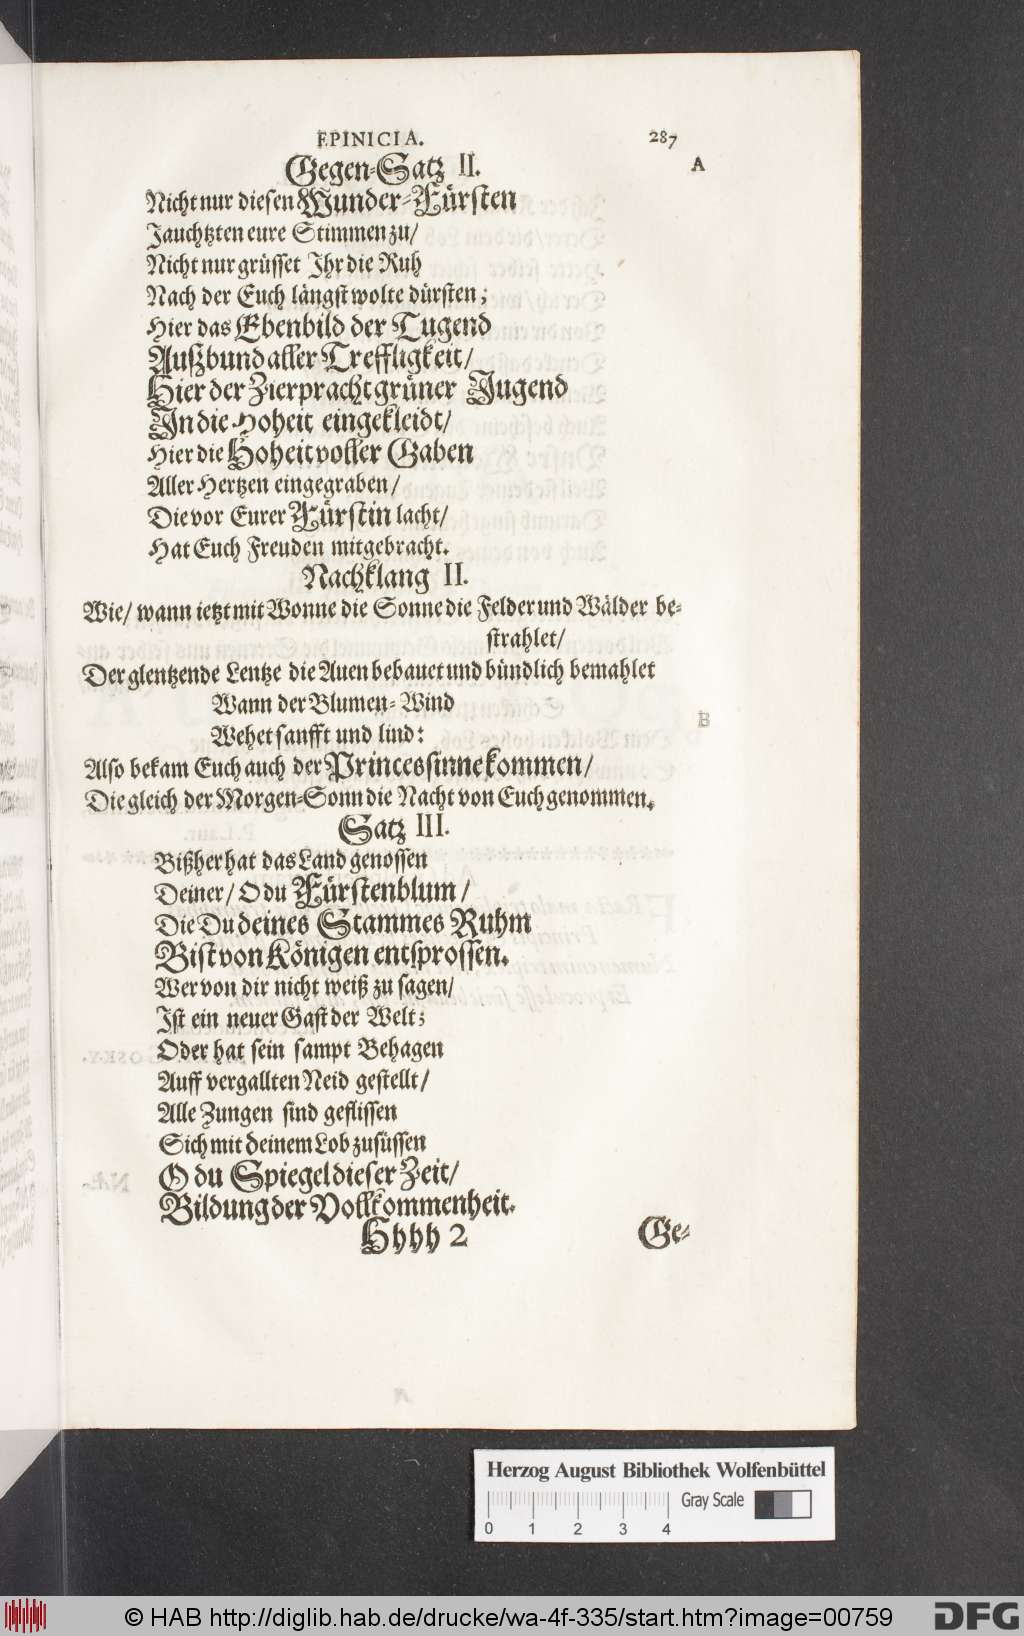 EPINICIA. 287
A
Gegen-Satz II.
Nicht nur diesen Wunder-Fürsten
Jauchtzten eure Stimmen zu/
Nicht nur grüsset Ihr die Ruh
Nach der Euch längst wolte dürsten;
Hier das Ebenbild der Tugend
Außbund aller Treffligkeit/
Hier der Zierpracht grüner Jugend
In die Hoheit eingekleidt/
Hier die Hoheit voller Gaben
Aller Hertzen eingegraben/
Die vor Eurer Fürstin lacht/
Hat Euch Freuden mitgebracht.
Nachklang II.
Wie/ wann ietzt mit Wonne die Sonne die Felder und Wälder be-
strahlet/
Der glentzende Lentze die Auen bebauet und bündlich bemahlet
Wann der Blumen-Wind
B
Wehet sanfft und lind:
Also bekam Euch auch der Princessinne kommen/
Die gleich der Morgen-Sonn die Nacht von Euch genommen.
Satz III.
Bißher hat das Land genossen
Deiner/ O du Fürstenblum/
Die Du deines Stammes Ruhm
Bist von Königen entsprossen.
Wer von dir nicht weiß zu sagen/
Ist ein neuer Gast der Welt;
Oder hat sein sampt Behagen
Auff vergallten Neid gestellt/
Alle Zungen sind geflissen
Sich mit deinem Lob zusüssen
O du Spiegel dieser Zeit/
Bildung der Vollkommenheit.
Hhhh 2 Ge-
Herzog August Bibliothek Wolfenbüttel
Gray Scale
0 1 2 3 4
© HAB http://diglib.hab.de/drucke/wa-4f-335/start.htm?image=00759
DFG